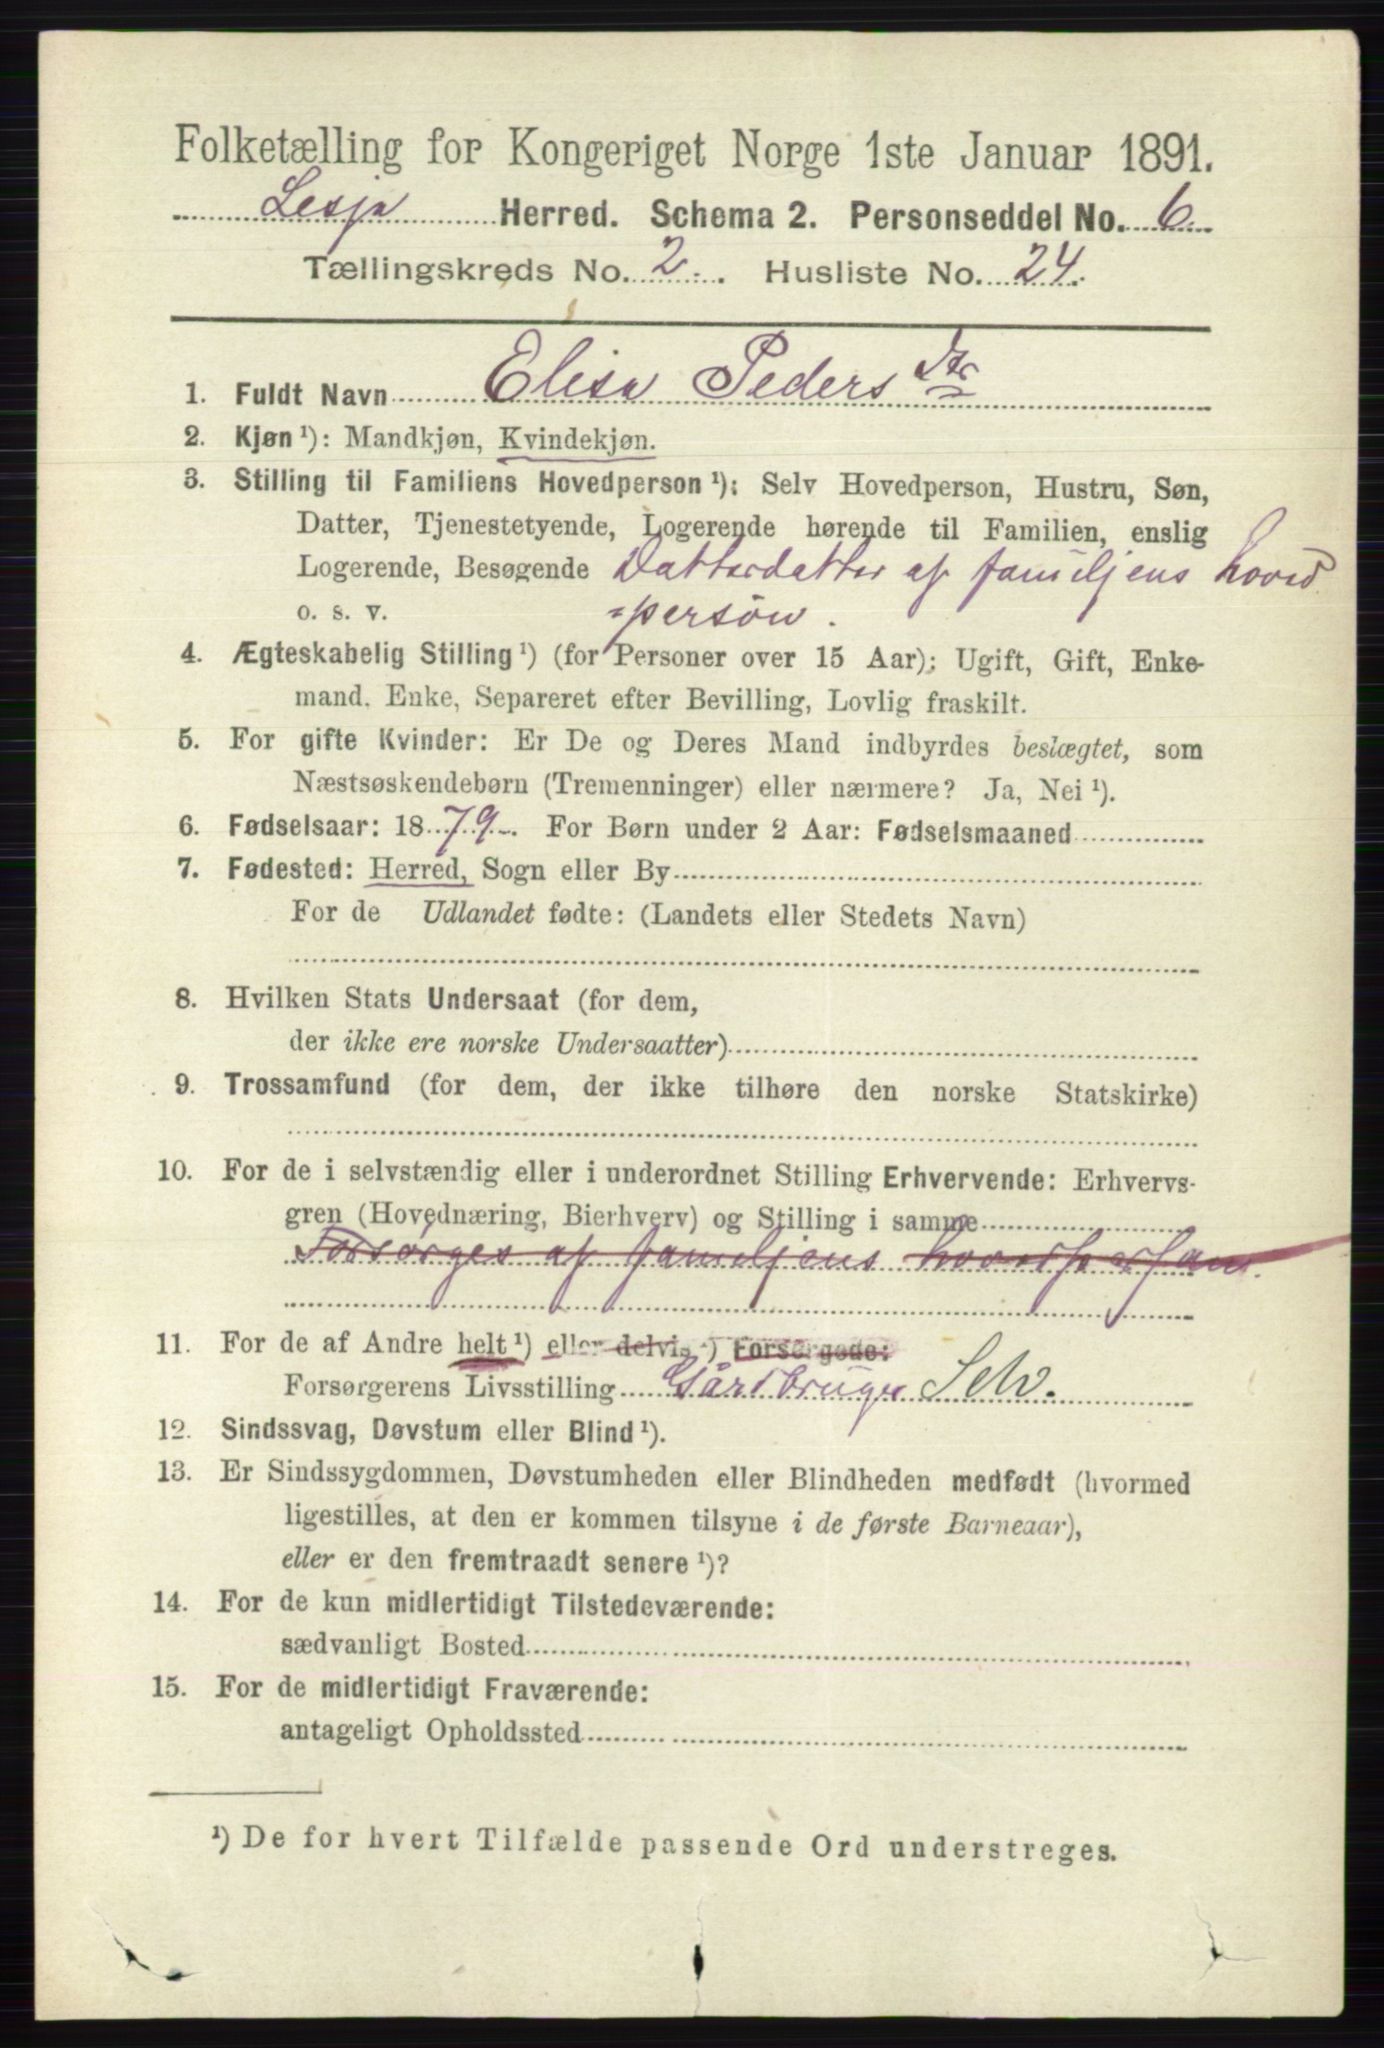 Folketælling for Kongeriget Norge 1ste Januar 1891.
Lesja Herred. Schema 2. Personseddel No. 6
Tællingskreds No. 2. Husliste No. 24.
1. Fuldt Navn Elisa Peders Dtr
2. Kjøn ¹): Mandkjøn, Kvindekjøn.
3. Stilling til Familiens Hovedperson ¹): Selv Hovedperson, Hustru, Søn,
Datter, Tjenestetyende, Logerende hørende til Familien, enslig
Logerende, Besøgende Datterdatter af familjens hoved
o. s. v. =persön.
4. Ægteskabelig Stilling ¹) (for Personer over 15 Aar): Ugift, Gift, Enke-
mand, Enke, Separeret efter Bevilling, Lovlig fraskilt.
5. For gifte Kvinder: Er De og Deres Mand indbyrdes beslægtet, som
Næstsøskendebørn (Tremenninger) eller nærmere? Ja, Nei ¹).
6. Fødselsaar: 1879. For Børn under 2 Aar: Fødselsmaaned
7. Fødested: Herred, Sogn eller By
For de Udlandet fødte: (Landets eller Stedets Navn)
8. Hvilken Stats Undersaat (for dem,
der ikke ere norske Undersaatter)
9. Trossamfund (for dem, der ikke tilhøre den norske Statskirke)
10. For de i selvstændig eller i underordnet Stilling Erhvervende: Erhvervs-
gren (Hovednæring, Bierhverv) og Stilling i samme
Forsørges af familjens
11. For de af Andre helt ¹) eller delvis ¹) Forsørgede:
Forsørgerens Livsstilling Gårdbruger Selv.
12. Sindssvag, Døvstum eller Blind ¹).
13. Er Sindssygdommen, Døvstumheden eller Blindheden medfødt (hvormed
ligestilles, at den er kommen tilsyne i de første Barneaar),
eller er den fremtraadt senere ¹)?
14. For de kun midlertidigt Tilstedeværende:
sædvanligt Bosted
15. For de midlertidigt Fraværende:
antageligt Opholdssted
¹) De for hvert Tilfælde passende Ord understreges.